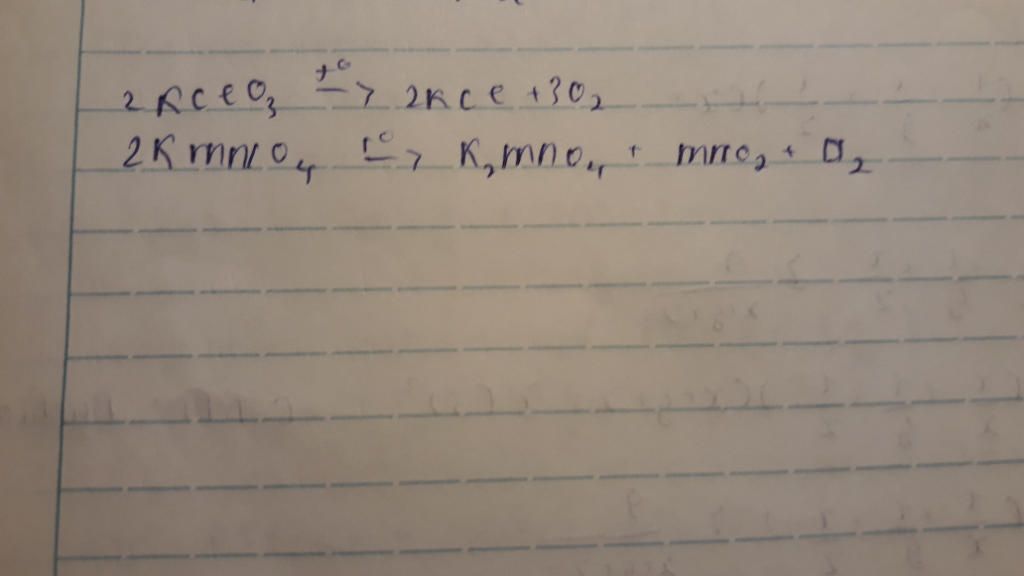 2KClO₃ t°→ 2KCl + 3O₂
2KmnO₄ t°→ K₂mnO₄ + mnO₂ + O₂